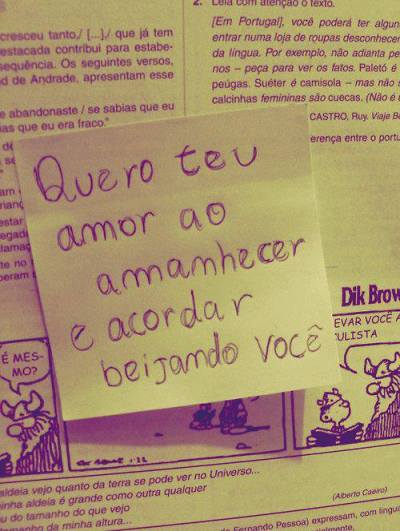 2. Leia com atenção o texto.
cresceu tanto,/ [...],/ que já tem
estacada contribui para estabe-
sequência. Os seguintes versos,
d de Andrade, apresentam esse
e abandonaste / se sabias que eu
ias que eu era fraco."
[Em Portugal], você poderá ter algum
entrar numa loja de roupas desconhecen
da língua. Por exemplo, não adianta pe
nos – peça para ver os fatos. Paletó é
peúgas. Suéter é camisola – mas não s
calcinhas femininas são cuecas. (Não é
CASTRO, Ruy. Viaje Be
erença entre o portu
Quero teu
amor ao
amanhecer
e acordar
beijando você
Dik Brow
EVAR VOCÊ A
ULISTA
É MES-
MO?
aldeia vejo quanto da terra se pode ver no Universo...
inha aldeia é grande como outra qualquer
u do tamanho do que vejo
tamanho da minha altura...
(Alberto Caeiro)
de Fernando Pessoa) expressam, com lingu